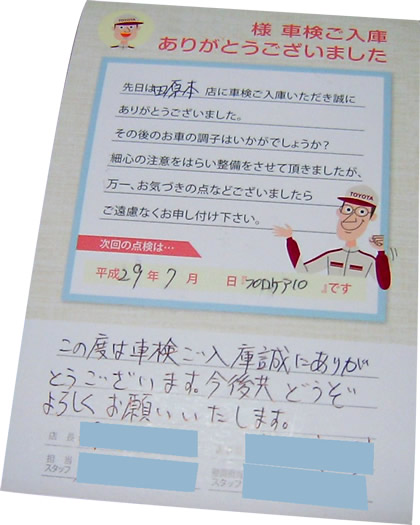 TOYOTA
様 車検ご入庫
ありがとうございました
先日は田原本 店に車検ご入庫いただき誠に
ありがとうございました。
その後のお車の調子はいかがでしょうか?
細心の注意をはらい整備をさせて頂きましたが、
万一、お気づきの点などございましたら
ご遠慮なくお申し付け下さい。
TOYOTA
次回の点検は…
平成29年7月 日『プロケア10 』です
この度は車検ご入庫誠にありが
とうございます。今後共 どうぞ
よろしく お願いいたします。
店 長
担 当
スタッフ
スタッフ